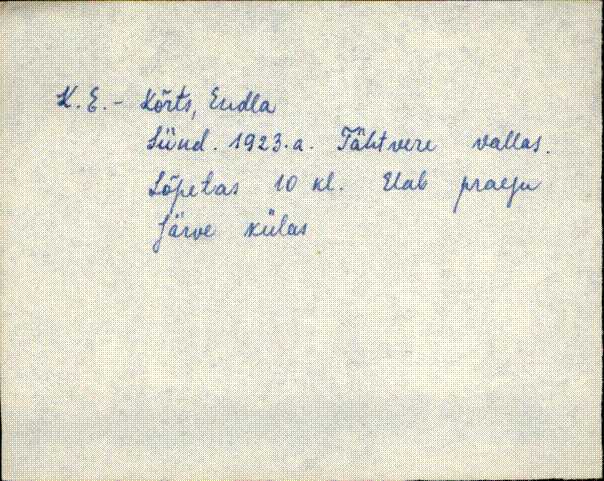 K. E. - Kõrts, Endla
Sünd. 1923. a. Tähtvere vallas.
Lõpetas 10 kl. Elab praegu
Järve külas